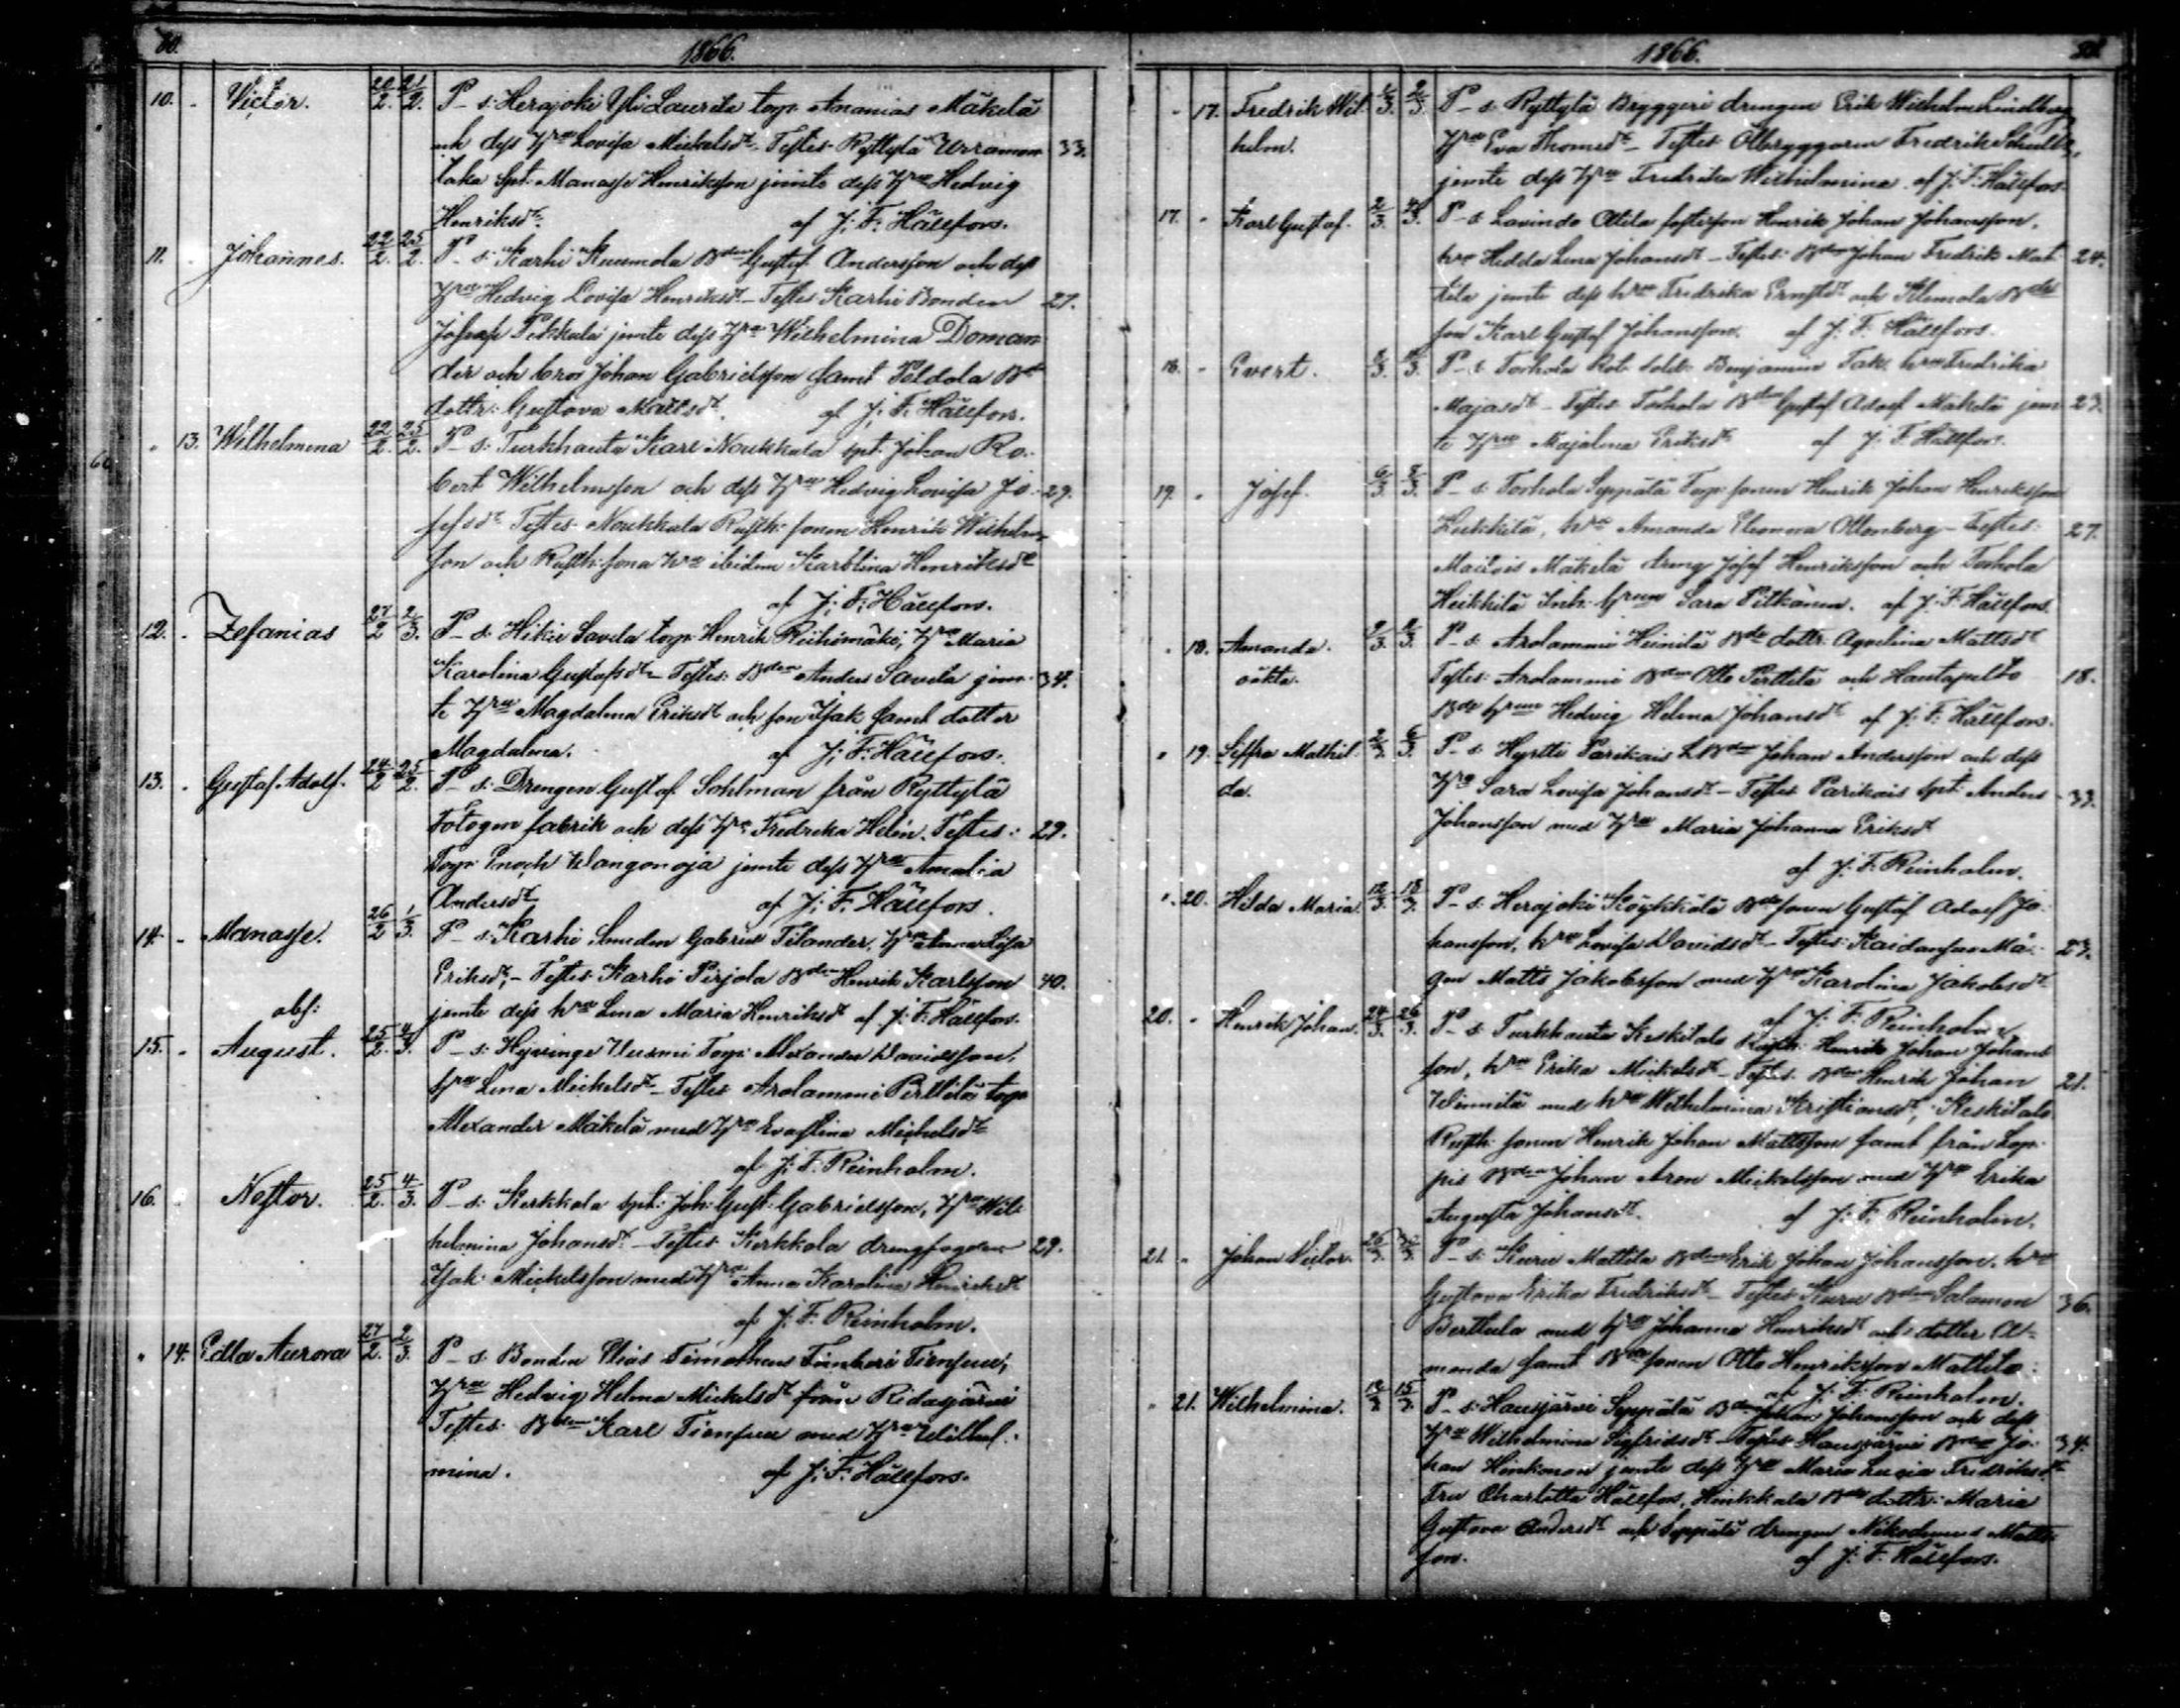 80.
1866.
10. Victor. 20/2. 21/2. P_ s: Herajoki Yli Laurila torp. Ananias Mäkelä
och dess Hru Lovisa Michelsdr. Testes Ryttylä Urramon 33.
taka Spt. Manasse Henriksson jemte dess Hru Hedvig
Henriksdr. af J: F: Hällfors.
11. Johannes. 22/2. 25/2. P_ s: Karhi Kuumola Bden Gustaf Andersson och dess
Hru Hedvig Lovisa Henriksdr. Testes Karhi Bonden 27.
Josep Pekkala jemte dess Hru Wilhelmina Doman
der och bror Johan Gabrielsson samt Peldola Bde
dottr: Gustava Mattsdr. af J: F: Hällfors.
" 13. Wilhelmina 22/2. 25/2. P_ s: Turkhauta Karl Noukkala spt. Johan Ro:
bert Wilhelmsson och dess Hru Hedvig Lovisa Jo: 29.
sefsdr. Testes Noukkala Rusth: sonen Henrik Wilhelms
son och Rusth: sona hru ibidem Karolina Henriksdr
af J: F: Hällfors.
12. Zefanias 27/2 2/3. P_ s: Hikiä Savela torp: Henrik Riihimäki, Hru Maria
Karolina Gustafsdr. Testes: Bden Anders Savela jem- 34.
te Hru Magdalena Eriksdr och son Isak samt dotter
Magdalena. af J: F: Hällfors.
13. Gustaf Adolf. 24/2 25/2. P_ s: Drengen Gustaf Sohlman från Ryttylä
Fotogen fabrik och dess Hru Fredrika Helin. Testes: 29.
Torp: Enoch Wangonoja jemte dess Hru Amalia
Andersdr. af J: F: Hällfors.
14. Manasse. 26/2 1/3. P_ s: Karhi Smeden Gabriel Tilander, Hru Anna Lisa
Eriksdr. Testes Karhi Perjola Bden Henrik Karlsson 40.
obs: jemte dess hru Lena Maria Henriksdr af J: F: Hällfors.
15. August. 25/2. 4/3. P_ s: Hyvinge Uusmi Torp: Alexander Davidsson,
hru Lena Michelsdr. Testes Arolammi Perttilä torp
Alexander Mäkelä med Hru Evastina Michelsdr
af J: F: Reinholm.
16. Nestor. 25/2. 4/3. P_ s: Kerkkola spt: Joh: Gust: Gabrielsson, Hru Wil:
helmina Johansdr. Testes Kerkkola drengfogden 29.
Isak Mickelsson med Hru Anna Karolina Henriksdr
af J: F: Reinholm.
" 14. Edla Aurora 27/2. 2/3. P_ s: Bonden Elias Timotheus
Hru Hedvig Helena Mickelsdr från Ridasjärvi
Testes: Bden Karl med Hru Wilhel:
mina. af J: F: Hällfors.
1866.
" 17. Fredrik Wil 1/3. 2/3. P_ s: Ryttylä Bryggeri drengen Erik Wilhelm Lindberg
helm. Hru Eva Thomsdr. Testes Ölbryggaren Fredrik Schultz,
jemte dess Hru Fredrika Wilhelmina af J: F: Hällfors.
17. Karl Gustaf. 2/3. 4/3. P_ s: Lavinto Alila fosterson Henrik Johan Johansson,
hru Hedda Lena Johansdr. Testes: Bden Johan Fredrik Mat: 24.
tila jemte dess hru Fredrika Ernstdr och Klemola Bde
son Karl Gustaf Johansson. af J: F: Hällfors.
18. Evert. P_ s: Torhola Rot. sold: Benjamin Tak. hru Fredrika
Majasdr. Testes Torhola Bden Gustaf Adolf Mäkelä jem 23.
te Hru Majalena Eriksdr af J: F: Hällfors.
19. Josef. 6/3. 8/3. P_ s: Torhola Seppälä Torp: sonen Henrik Johan Henriksson
Heikkilä, hru Amanda Elionora Ollonberg. Testes: 27.
Mäkelä dreng Josef Henriksson och Torhola
Heikkilä Inh. hrun Sara Pitkänen. af J: F: Hällfors.
" 18. Amanda. P_ s: Arolammi Heinilä Bde dottr. Agnelina Mattsdr
oäkta. Testes: Arolammi Bden Otto Perttilä och Hautapelto 18.
Bde hrun Hedvig Helena Johansdr. af J: F: Hällfors.
" 19. Siffra Mathil 2/3. 6/3. P_ s: Hyrtti Parikais LBden Johan Andersson och dess
da. Hru Sara Lovisa Johansdr. Testes Parikais spt. Anders 33.
Johansson med Hru Maria Johanna Eriksdr
af J: F: Reinholm.
" 20. Hilda Maria. 12/3. 18/3. P_ s: Herajoki Köykkälä Bde sonen Gustaf Adolf Jo:
hansson, hru Lovisa Davidsdr. Testes: Må: 23.
gen Matts Jakobsson med Hru Karolina Jakobsdr.
af J: F: Reinholm.
20. Henrik Johan. 24/3. 26/3. P_ s: Turkhauta Keskitalo Rusth. Henrik Johan Johans
son, hru Erika Mickelsdr. Testes. Bden Henrik Johan 21.
Winnilä med hru Wilhelmina Kristiansdr, Keskitalo
Rusth: sonen Henrik Johan Mattsson samt från Lop:
pis Bden Johan Aron Mickelsson med Hru Erika
Augusta Johansdr. af J: F: Reinholm.
21. Johan Victor. P_ s: Kuru Mattila Bden Erik Johan Johansson. hru
Gustava Erika Fredriksdr. Testes Kuru Bden Salamon 36.
Berttula med hru Johanna Henriksdr och dotter A-
manda samt Bde sonen Otto Henriksson Mattila:
af J: F: Reinholm.
" 21. Wilhelmina. P_ s: Hausjärvi Seppälä Bden Johan Johansson och dess
Hru Wilhelmina Sigfridsdr. Testes Hausjärvi Bden Jo: 34.
han Heinkonen jemte dess Hru Maria Lucia Fredriksdr
Fru Charlotta Hällfors, Heinkkala Bde dottr: Maria
Gustava Andersdr och Seppälä drengen Nikodemus Matts
son. af J: F: Hällfors.